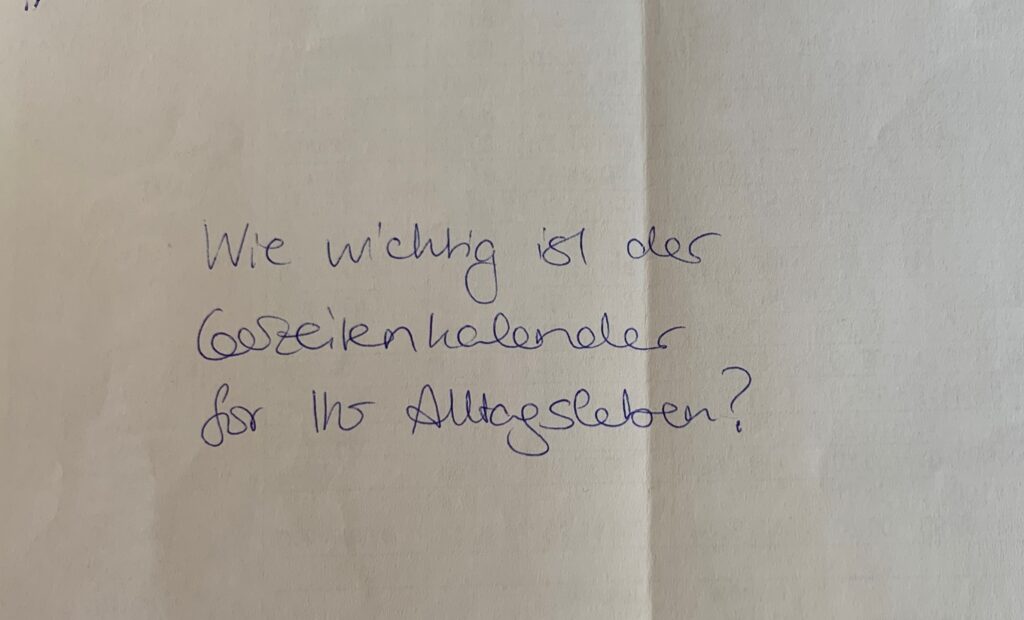 Wie wichtig ist der
Gezeitenkalender
für Ihr Alltagsleben?